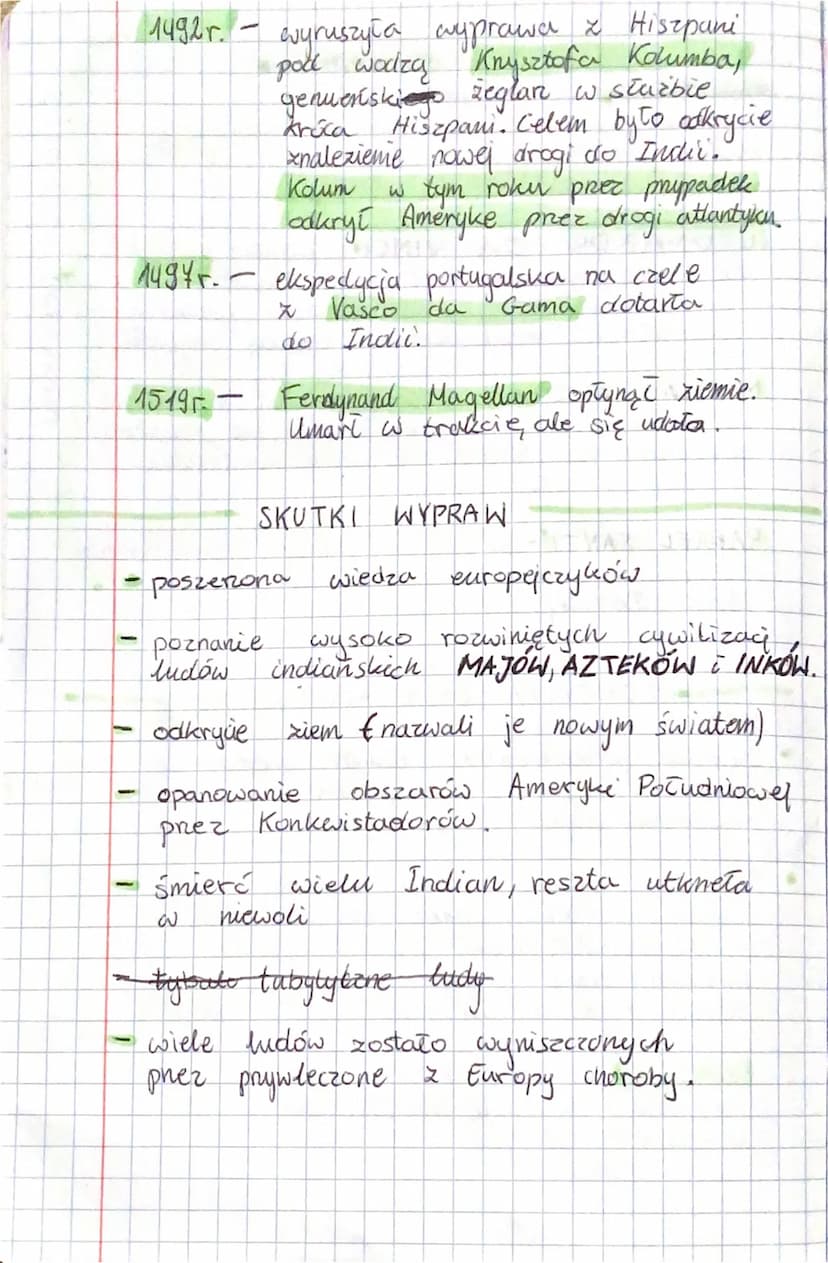 1492r. – wyruszyła wyprawa z Hiszpani
pod wodzą Krzysztofa Kolumba,
genueński żeglarz w służbie
króla Hiszpani. Celem było odkrycie
znalezienie nowej drogi do Indii.
Kolum w tym roku przez przypadek
odkrył Ameryke przez drogi atlantyku.
1497r. – ekspedycja portugalska na czele
z Vasco da Gama dotarła
do Indii.
1519r. – Ferdynand Magellan opłynął ziemie.
Umarł w trakcie, ale się udała.
SKUTKI WYPRAW
- poszerzona wiedza europejczyków
- poznanie wysoko rozwiniętych cywilizacj
ludów indiańskich MAJÓW, AZTEKÓW i INKÓW.
- odkrycie ziem (nazwali je nowym światem)
- opanowanie obszarów Ameryki Południowej
przez Konkwistadorów.
- śmierć wielu Indian, reszta utkneła
w niewoli
- ludy
- wiele ludów zostało wyniszczonych
przez przywleczone z Europy choroby.